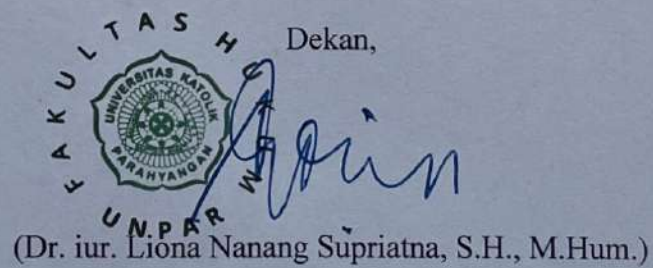 Dekan,
FAKULTAS HUKUM
UNIVERSITAS KATOLIK
PARAHYANGAN
UNPAR
(Dr. iur. Liona Nanang Supriatna, S.H., M.Hum.)